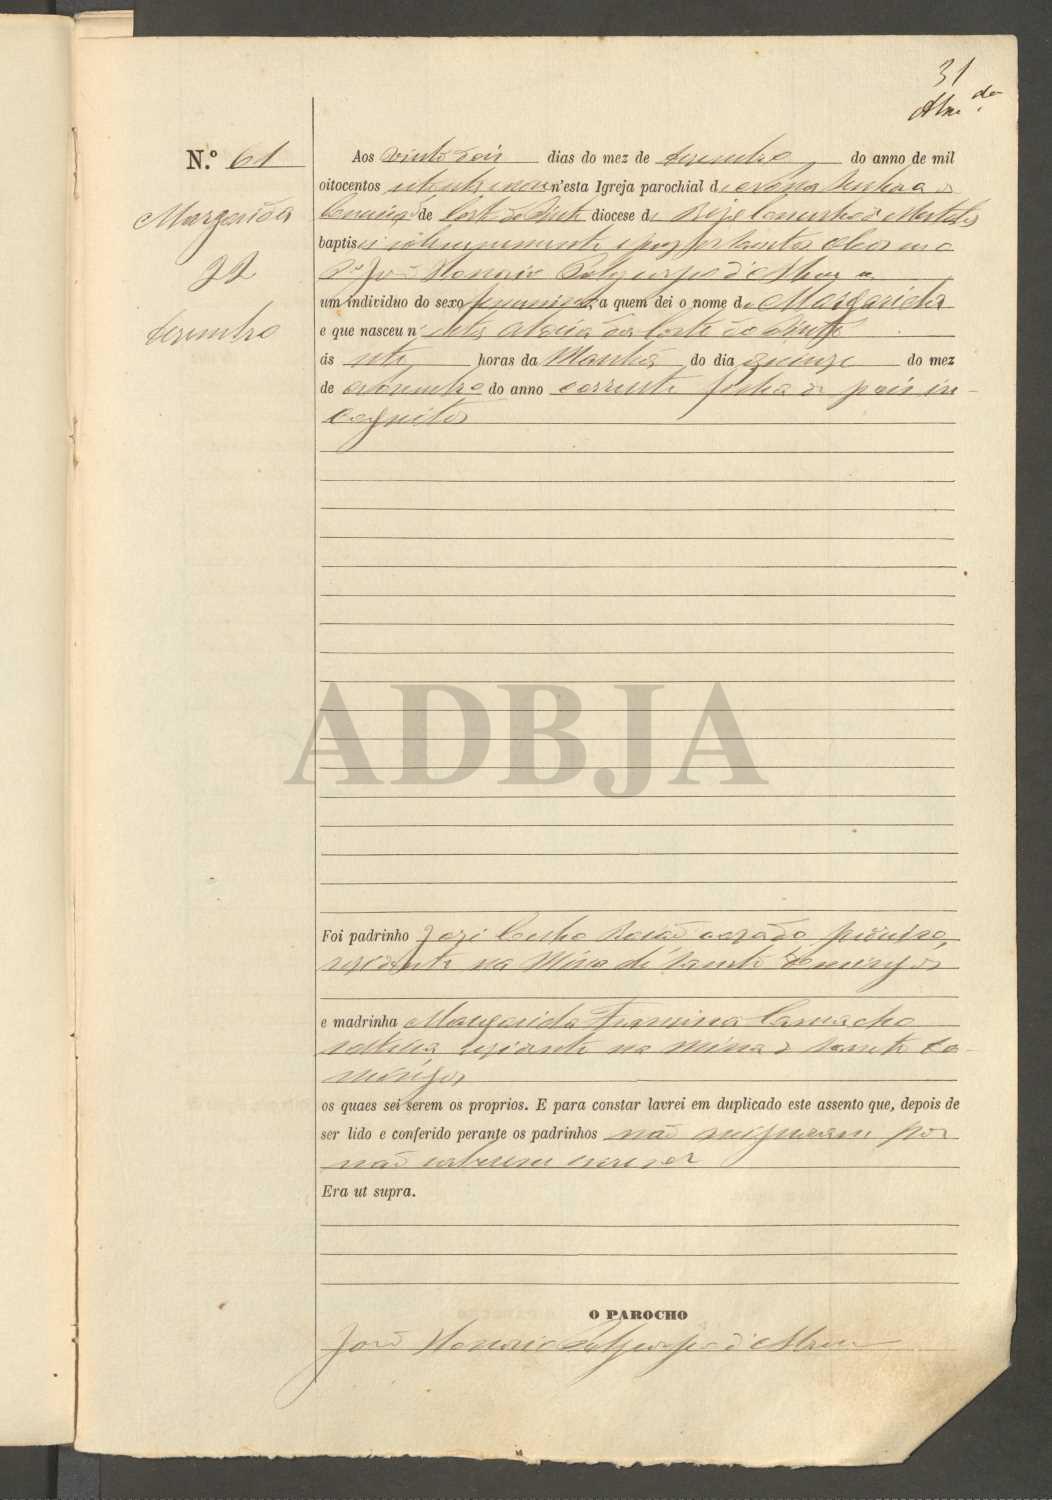 31
N.º 61
Margarida
22
dezembro
Aos vinte dois dias do mez de dezembro do anno de mil
oitocentos oitenta e nove n'esta Igreja parochial de Nossa Senhora da
Conceição de Corte do Pinto diocese de Beja Concelho de Mertola
baptisei solemnemente e puz os Santos Oleos eu o
João Honorio Polycarpo d'
um individuo do sexo feminino a quem dei o nome de Margarida
e que nasceu n'esta Aldeia da Corte do Pinto
ás sete horas da Manhã do dia quinze do mez
de do anno corrente filha de pais in-
cognitos
ADBJA
Foi padrinho José casado
residente na Mina de Santo Domingos
e madrinha Margarida Camacho
solteira residente na Mina de Santo Do-
mingos
os quaes sei serem os proprios. E para constar lavrei em duplicado este assento que, depois de
ser lido e conferido perante os padrinhos não assignaram por
não saberem escrever
Era ut supra.
O PAROCHO
João Honorio Polycarpo d'